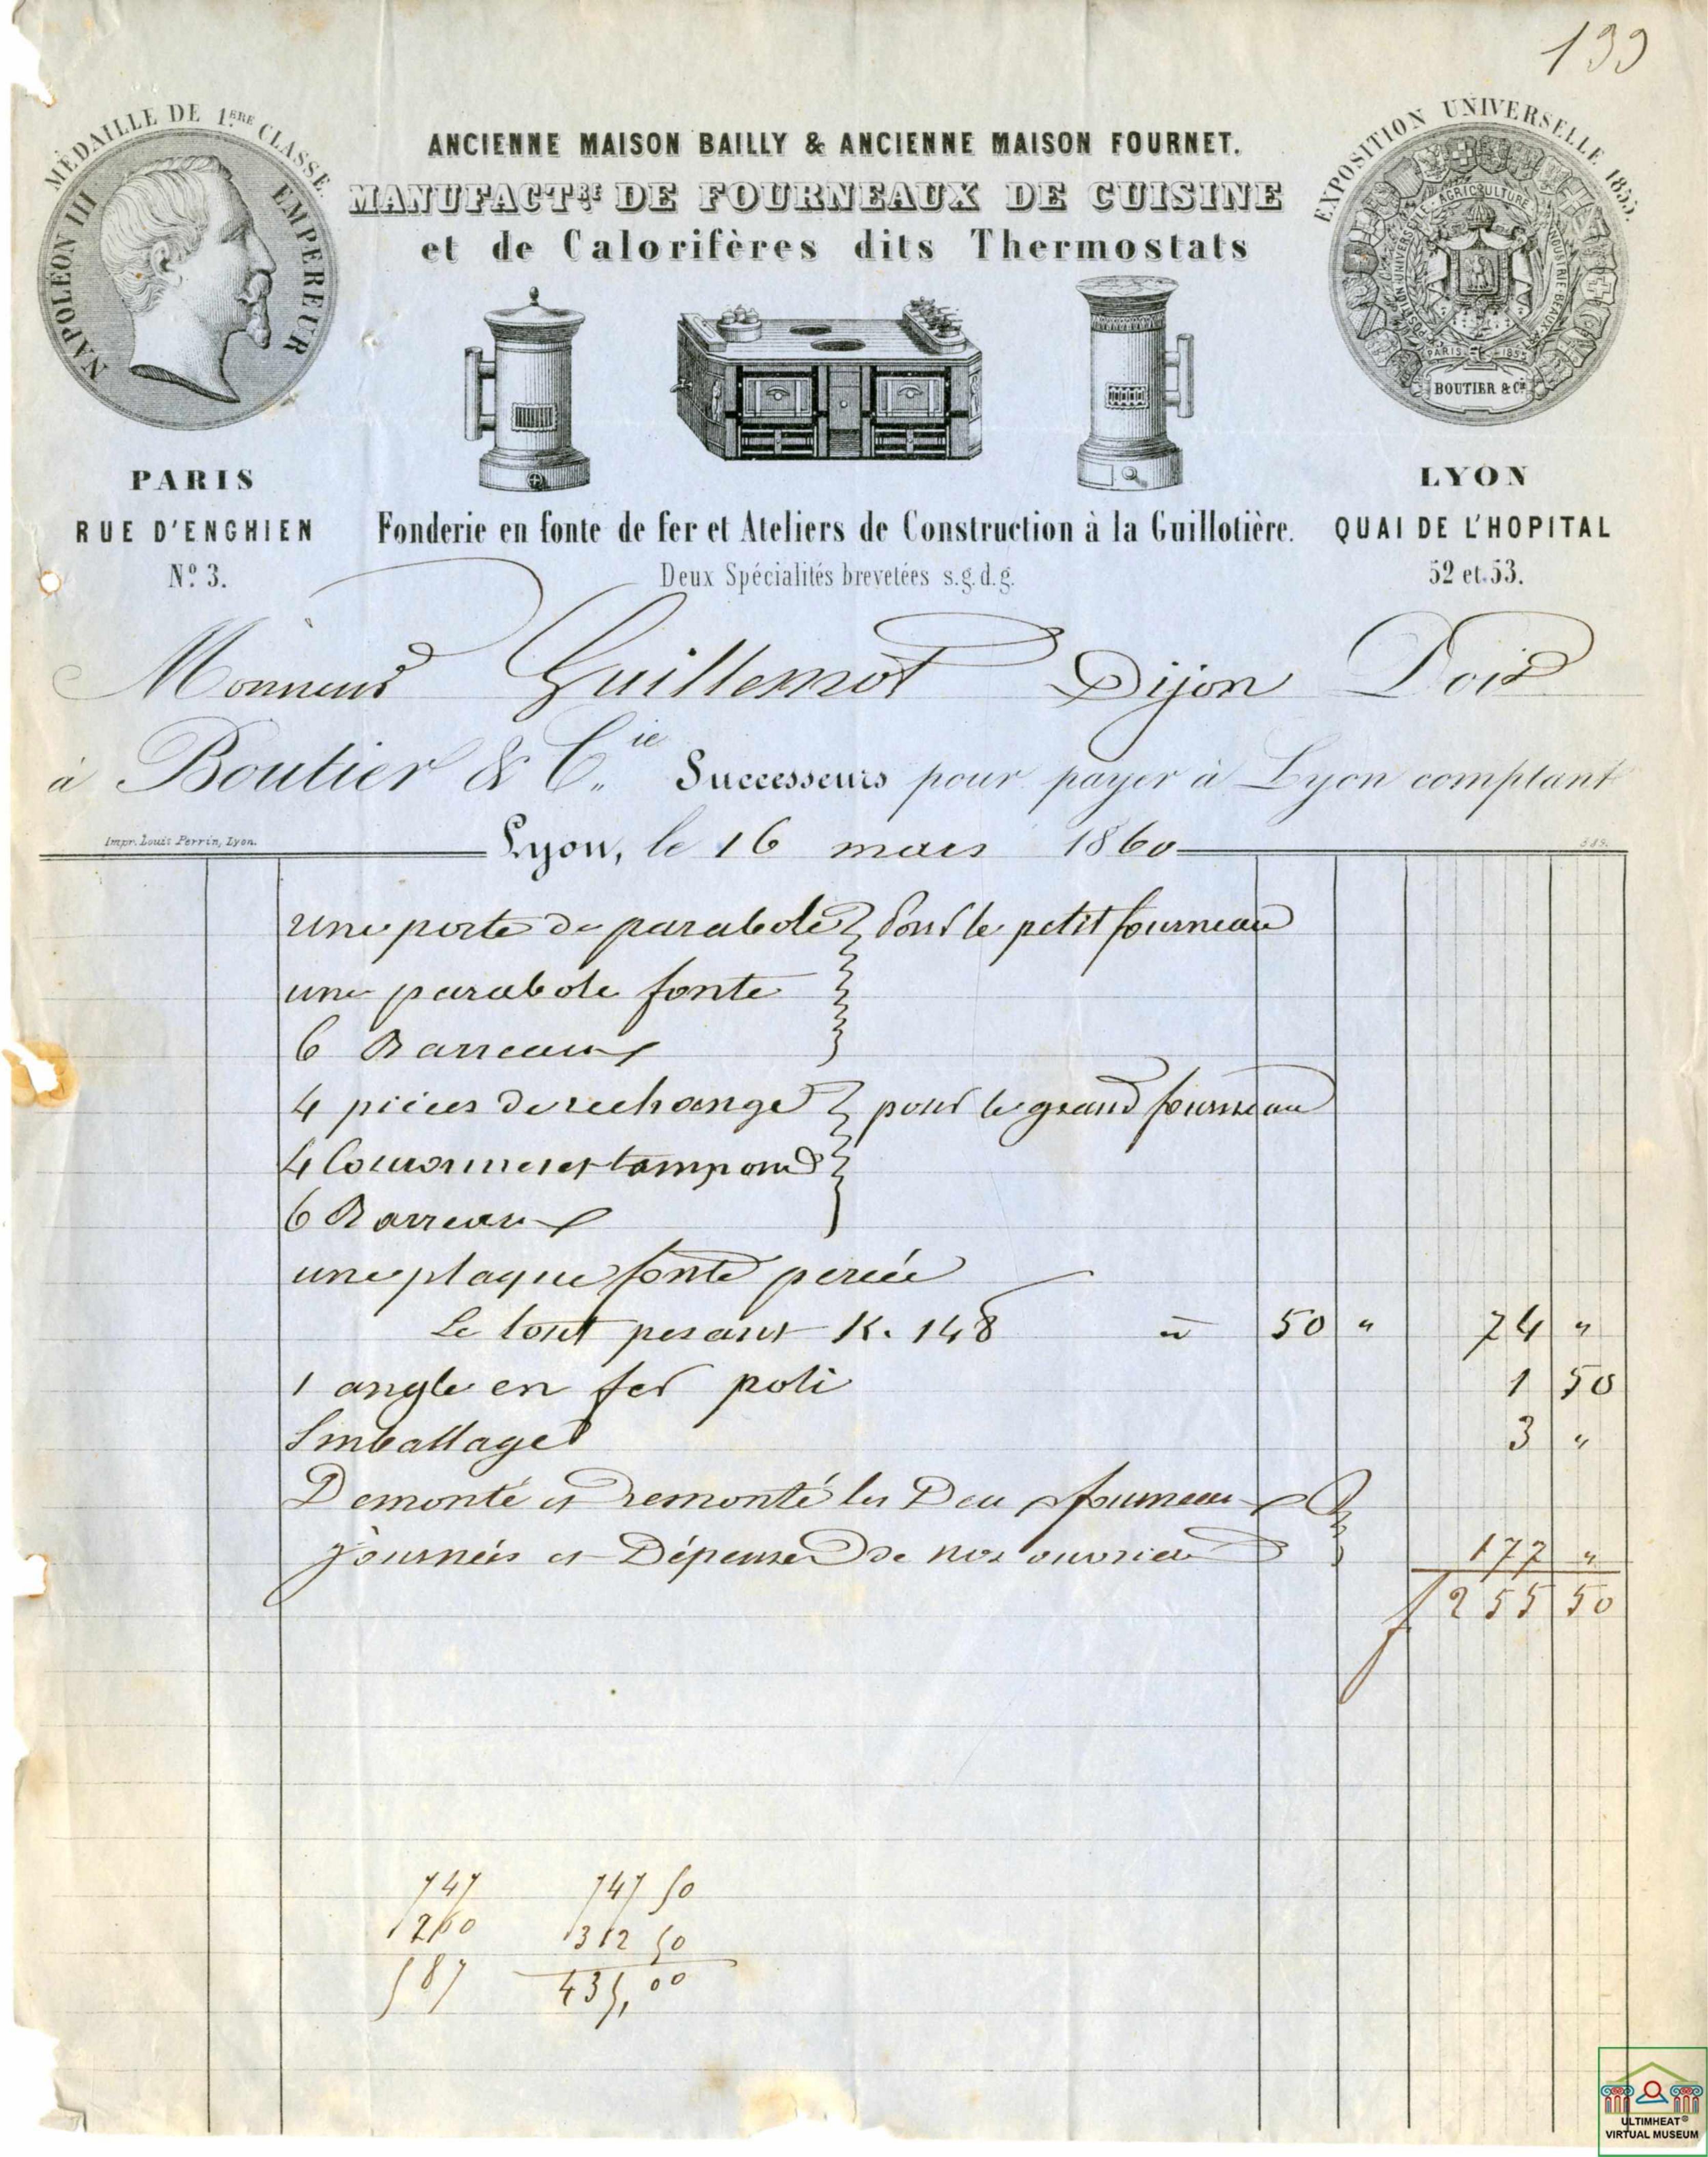 139
MÉDAILLE DE 1ÈRE CLASSE
NAPOLÉON III EMPEREUR
ANCIENNE MAISON BAILLY & ANCIENNE MAISON FOURNET.
MANUFACTRE DE FOURNEAUX DE CUISINE
et de Calorifères dits Thermostats
EXPOSITION UNIVERSELLE 1855.
AGRICULTURE INDUSTRIE BEAUX-
EXPOSITION UNIVERSELLE
PARIS 1855
BOUTIER & Cie
PARIS
RUE D'ENGHIEN
No 3.
Fonderie en fonte de fer et Ateliers de Construction à la Guillotière.
Deux Spécialités brevetées s.g.d.g.
LYON
QUAI DE L'HOPITAL
52 et 53.
Monsieur Guillemot Dijon Doit
à Boutier & Cie Successeurs pour payer à Lyon comptant
Impr. Louis Perrin, Lyon.
Lyon, le 16 mars 1860
une porte de parabole } pour le petit fourneau
une parabole fonte
6 Barreaux
4 pièces de rechange } pour le grand fourneau
4 Couronnes et tampons
6 Barreaux
une plaque fonte percée
Le tout pesant K. 148 à 50 " 74 "
1 angle en fer poli 1 50
Emballage 3 "
Demonté et remonté les Deux fourneaux
journées et Dépenses de nos ouvriers 177 "
f 255 50
747 747 50
260 312 50
587 435,00
ULTIMHEAT®
VIRTUAL MUSEUM